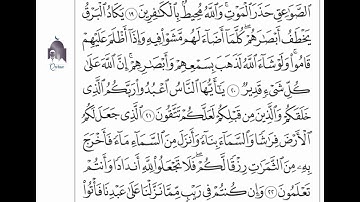 الصَّوَاعِقِ حَذَرَ الْمَوْتِ وَاللَّهُ مُحِيطٌ بِالْكَافِرِينَ ١٩ يَكَادُ الْبَرْقُ
يَخْطَفُ أَبْصَارَهُمْ كُلَّمَا أَضَاءَ لَهُم مَّشَوْا فِيهِ وَإِذَا أَظْلَمَ عَلَيْهِمْ
قَامُوا وَلَوْ شَاءَ اللَّهُ لَذَهَبَ بِسَمْعِهِمْ وَأَبْصَارِهِمْ إِنَّ اللَّهَ عَلَى
كُلِّ شَيْءٍ قَدِيرٌ ٢٠ يَا أَيُّهَا النَّاسُ اعْبُدُوا رَبَّكُمُ الَّذِي
خَلَقَكُمْ وَالَّذِينَ مِن قَبْلِكُمْ لَعَلَّكُمْ تَتَّقُونَ ٢١ الَّذِي جَعَلَ لَكُمُ
الْأَرْضَ فِرَاشًا وَالسَّمَاءَ بِنَاءً وَأَنزَلَ مِنَ السَّمَاءِ مَاءً فَأَخْرَجَ
بِهِ مِنَ الثَّمَرَاتِ رِزْقًا لَّكُمْ فَلَا تَجْعَلُوا لِلَّهِ أَندَادًا وَأَنتُمْ
تَعْلَمُونَ ٢٢ وَإِن كُنتُمْ فِي رَيْبٍ مِّمَّا نَزَّلْنَا عَلَى عَبْدِنَا فَأْتُوا